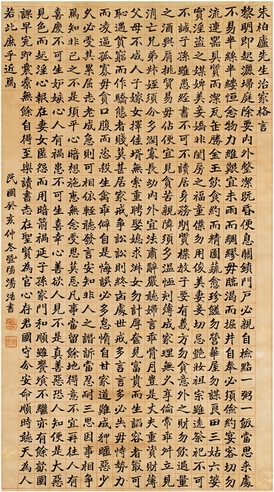 朱柏廬先生治家格言
黎明即起灑掃庭除要內外整潔既昏便息關鎖門戶必親自檢點一粥一飯當思來處
不易半絲半縷恒念物力維艱宜未雨而綢繆毋臨渴而掘井自奉必須儉約宴客切勿
流連器具質而潔瓦缶勝金玉飲食約而精園蔬愈珍饈勿營華屋勿謀良田三姑六婆
實淫盜之媒婢美妾嬌非閨房之福童僕勿用俊美妻妾切忌艷妝祖宗雖遠祭祀不可
不誠子孫雖愚經書不可不讀居身務期質樸教子要有義方勿貪意外之財勿飲過量
之酒與肩挑貿易毋佔便宜見貧苦親鄰須多溫恤刻薄成家理無久享倫常乖舛立見
消亡兄弟叔姪須分多潤寡長幼內外宜法肅辭嚴聽婦言乖骨肉豈是丈夫重貲財薄
父母不成人子嫁女擇佳壻毋索重聘娶媳求淑女勿計厚奩見富貴而生諂容者最可
恥遇貧窮而作驕態者賤莫甚居家戒爭訟訟則終凶處世戒多言言多必失毋恃勢力
而凌逼孤寡毋貪口腹而恣殺生禽乖僻自是悔誤必多頹惰自甘家道難成狎昵惡少
久必受其累屈志老成急則可相依輕聽發言安知非人之譖訴當忍耐三思因事相爭
焉知非己之不是須平心暗想施惠無念受恩莫忘凡事當留餘地得意不宜再往人有
喜慶不可生妒嫉心人有禍患不可生喜幸心善欲人見不是真善惡恐人知便是大惡
見色而起淫心報在妻女匿怨而用暗箭禍延子孫家門和順雖饔飧不繼亦有餘歡國
課早完即囊橐無餘自得至樂讀書志在聖賢為官心存君國守分安命順時聽天為人
若此庶乎近焉
民國癸亥仲冬暨陽湯浩書